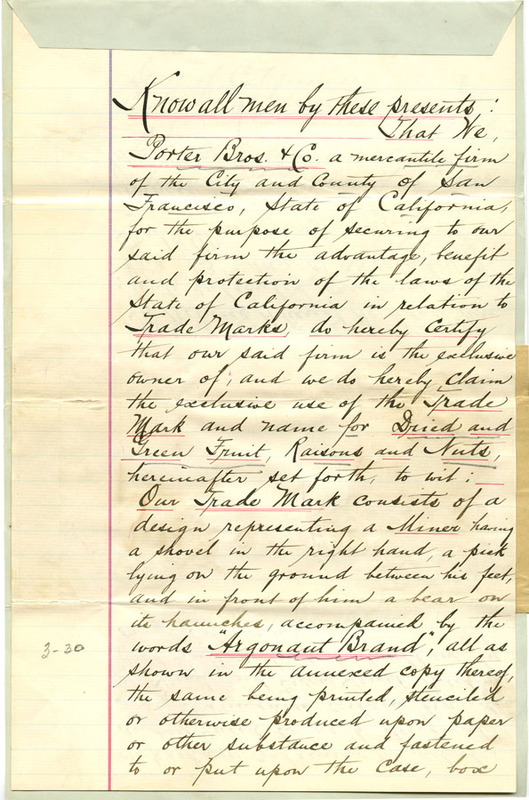 Know all men by these presents:
That We,
Porter Bros. & Co. a mercantile firm
of the City and County of San
Francisco, State of California,
for the purpose of securing to our
said firm the advantage, benefit
and protection of the laws of the
State of California in relation to
Trade Marks, do hereby Certify
that our said firm is the exclusive
owner of, and we do hereby Claim
the exclusive use of the Trade
Mark and name for Dried and
Green Fruit, Raisons and Nuts,
hereinafter set forth, to wit:
Our Trade Mark consists of a
design representing a Miner having
a shovel in the right hand, a pick
lying on the ground between his feet,
and in front of him a bear on
its haunches, accompanied by the
3-30
words "Argonaut Brand", all as
shown in the annexed copy thereof,
the same being printed, stenciled
or otherwise produced upon paper
or other substance and fastened
to or put upon the case, box